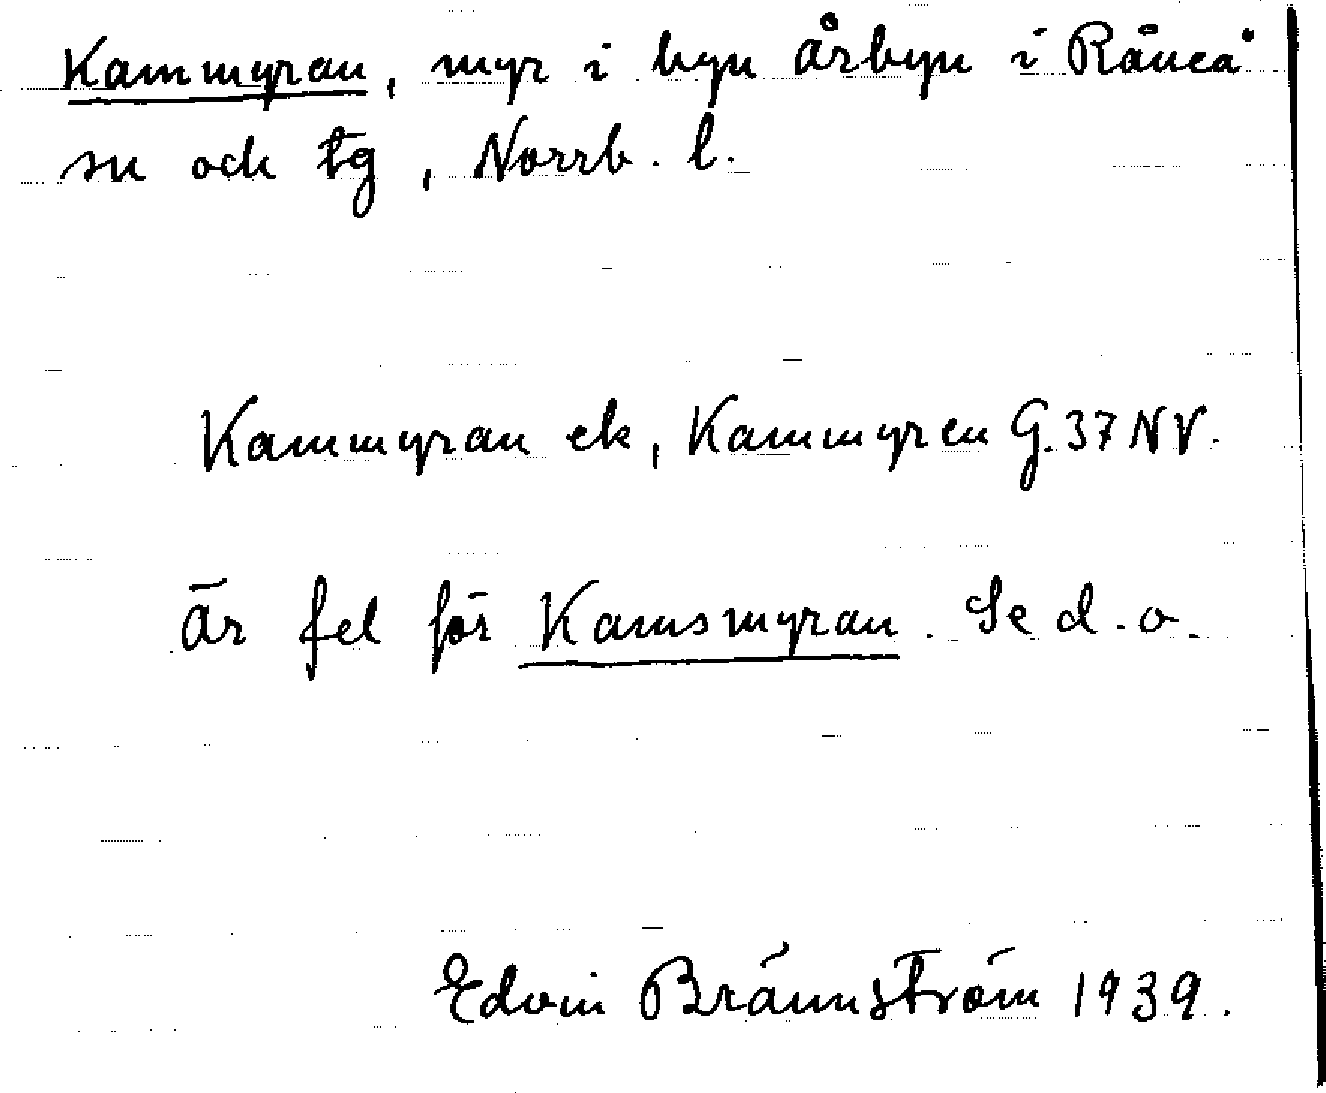 Kammyran, myr i byn Årbyn i Råneå
sn och tg, Norrb. l.
Kammyran ek, Kammyren G. 37 NV.
är fel för Kamsmyran. Se d. o.
Edvin Brännström 1939.